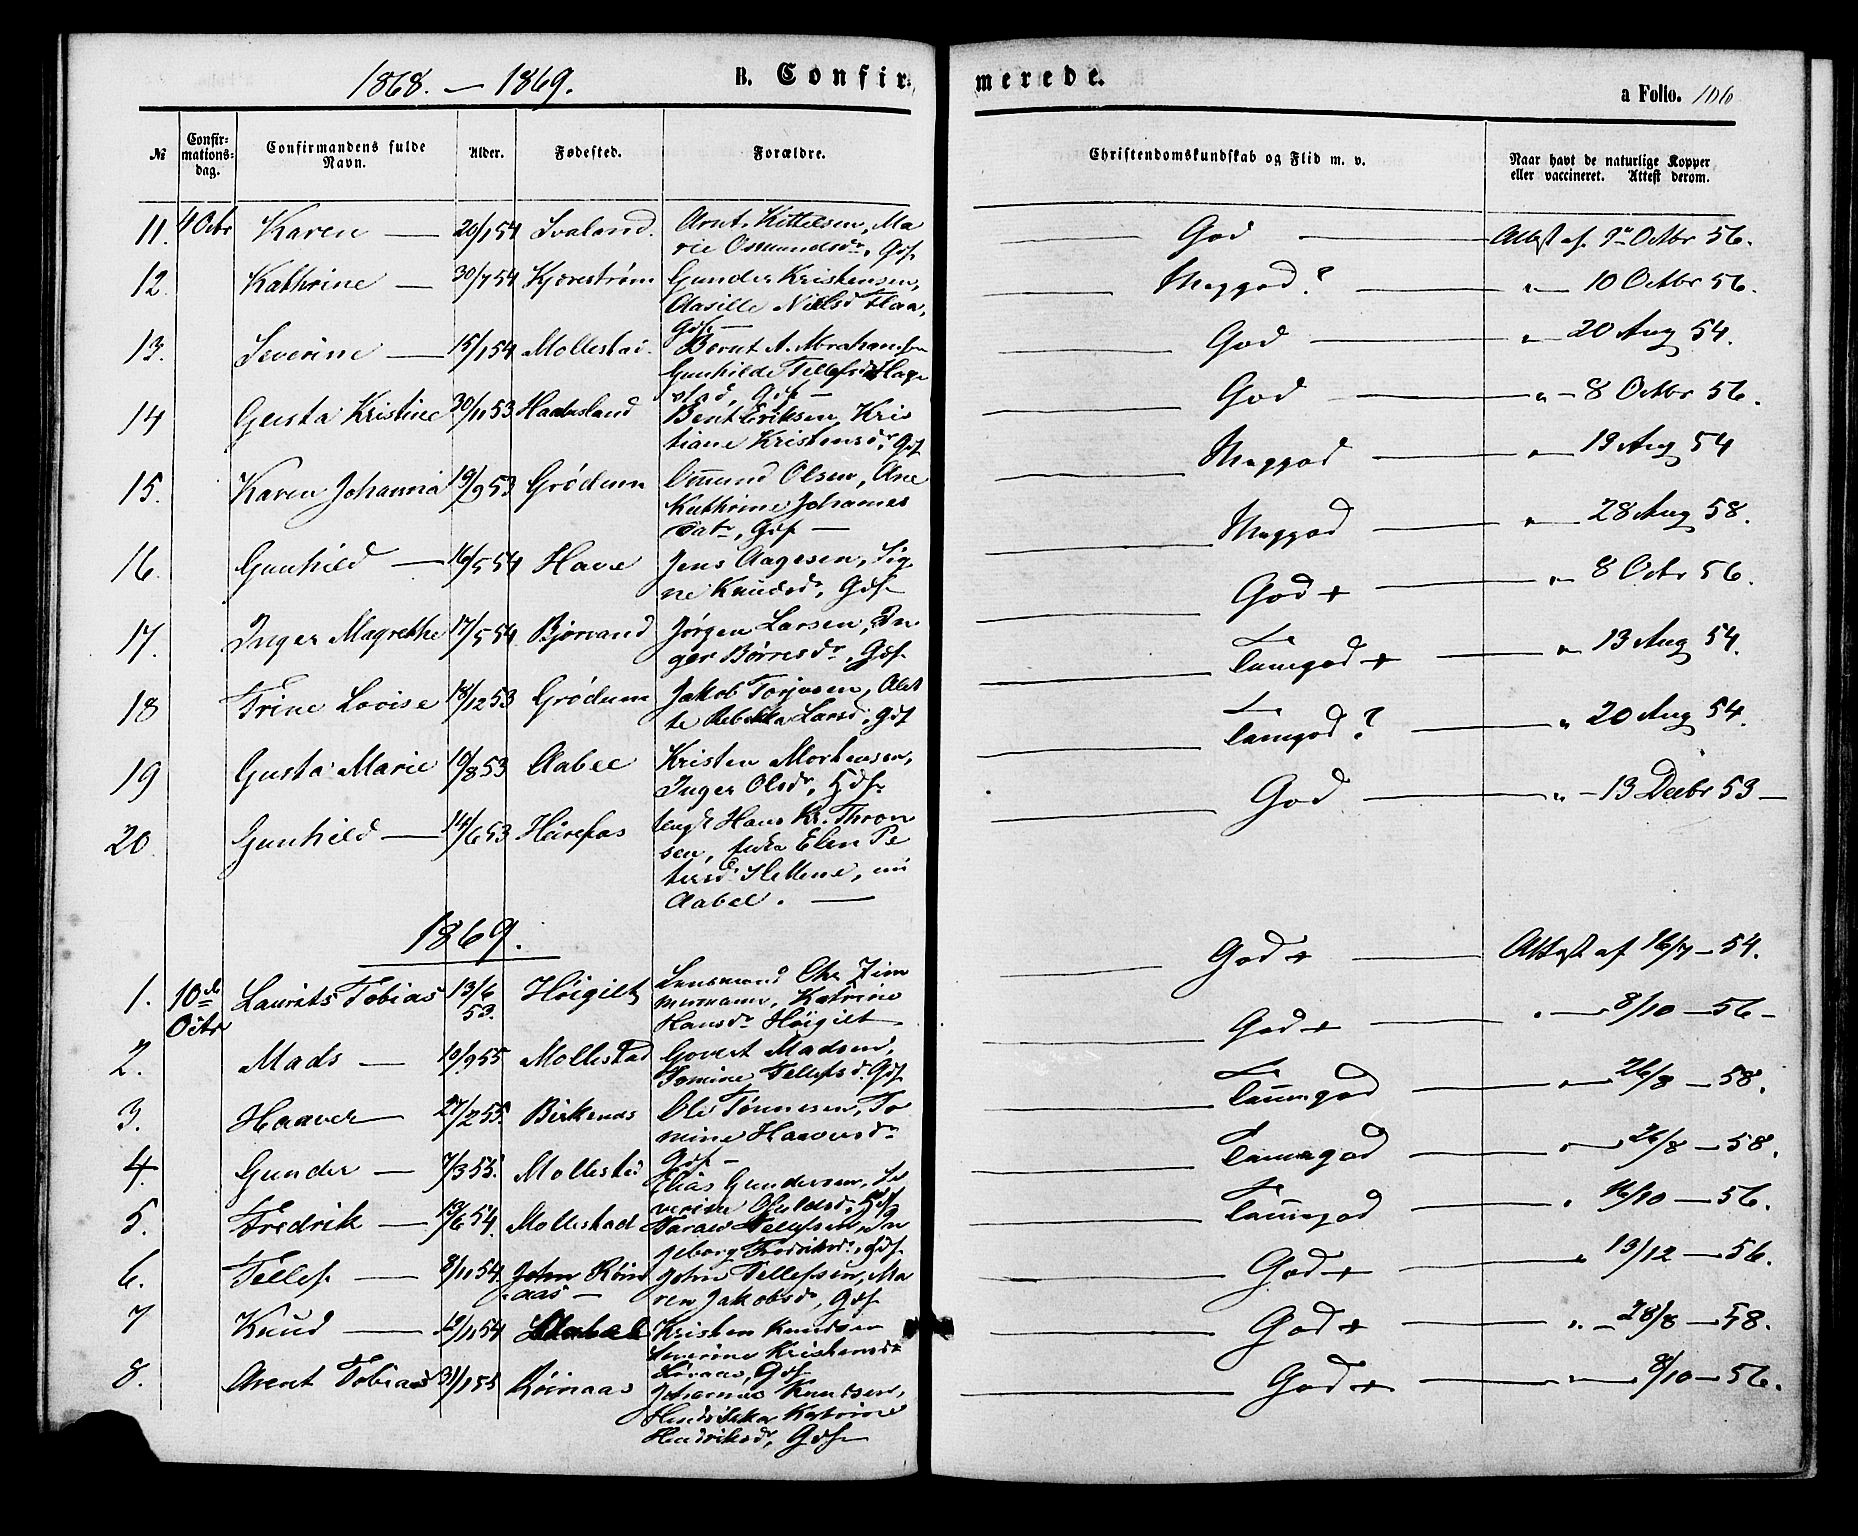 1868. — 1869. B. Confirmerede. a Folio. 106
№ Confirmationsdag. Confirmandens fulde Navn. Alder. Fødested. Forældre. Christendomskundskab og Flid m. v. Naar havt de naturlige Kopper eller vaccineret. Attest derom.
11. 4 Octbr Karen — 20/1 54 Svaland. Arnt Kittelsen, Ma
rie Osmundsdr, Gdf God Attest af 9de Octbr 56.
12. Kathrine — 30/7 54 Kjærestrøm Gunder Kristensen,
Aasille Nilsd Flaa,
Gdf — Meggod? " — 10 Octbr 56.
13. Severine — 15/1 54 Mollestad. Bernt A. Abrahamsen
Gunhilde Tellefsd Hage
stad, Gdf — God " 20 Aug 54.
14 Gusta Kristine 30/11 53 Haabesland Bent Eriksen, Kris
tiane Kristensdr, Gdf God " — 8 Octbr 56.
15. Karen Johanna 19/9 53 Grødum Omund Olsen, Ane
Kathrine Johannes
datr, Gdf — Meggod " — 19 Aug 54
16. Gunhild — 16/5 54 Have Jens Aagesen, Sig
ne Knudsdr, Gdf Meggod " — 28 Aug 58.
17. Inger Magrethe 17/5 54 Bjorvand Jørgen Larsen, In
ger Børresdr, Gdf. God + " — 8 Octbr 56.
18 Trine Lovise 18/12 53 Grødum Jakob Torjusen, Alet
te Rebekka Larsd, Gdf Tamgod + " — 13 Aug 54.
19 Gusta Marie 19/8 53 Aabel Kristen Mortensen,
Inger Olsdr, Hdf Tamgod? " 20 Aug 54.
20. Gunhild — 14/6 53 Høiefos Ungk Hans Kr. Thron
sen, Elen Pe
tersd. nu
Aabel. — God " — 13 Decbr 53 —
1869.
1. 10de Octbr Laurits Tobias 13/6 53. Høigilt Lensmand Chr Zim
mermann, Katrine
Hansdr Høigilt God + Attest af 16/7 — 54.
2. Mads — 19/9 55 Mollestad Govert Madsen,
Tomine Tellefsd. Gdf God + " — 8/10 — 56 —
3. Haaver — 27/2 55. Birkenæs Ole Tønnesen, To
mine Haaversdr
Gdf — Tamgod " 26/8 — 58.
4. Gunder — 7/3 55. Mollestad Elias Gundersen, Se
verine Oluldsd, Hdf Tamgod 26/8 — 58.
5. Fredrik — 13/6 54. Mollestad Tarald Tellefsen, In
geborg Fredriksdr, Gdf. Tamgod 16/10 — 56.
6. Tellef — 8/11 54. Røinaas — John Tellefsen, Ma
ren Jakobsd, Gdf God + " 13/12 — 56.
7 Knud — 19/11 54 Kristen Knudsen
Severine Kristensdr
Gdf God + " — 28/8 — 58.
8. Avent Tobias 31/1 55 Røinaas Johannes Knudsen,
Hendrikka Katrine
Hendriksdr, Gdf — God + " 8/10 — 56.